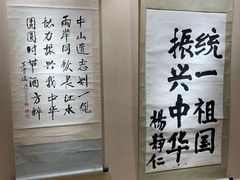 中山遗志刻一统
两岸同饮是江水
协力振兴我中华
团圆时节酒方醉
统一祖国
振兴中华
杨静仁